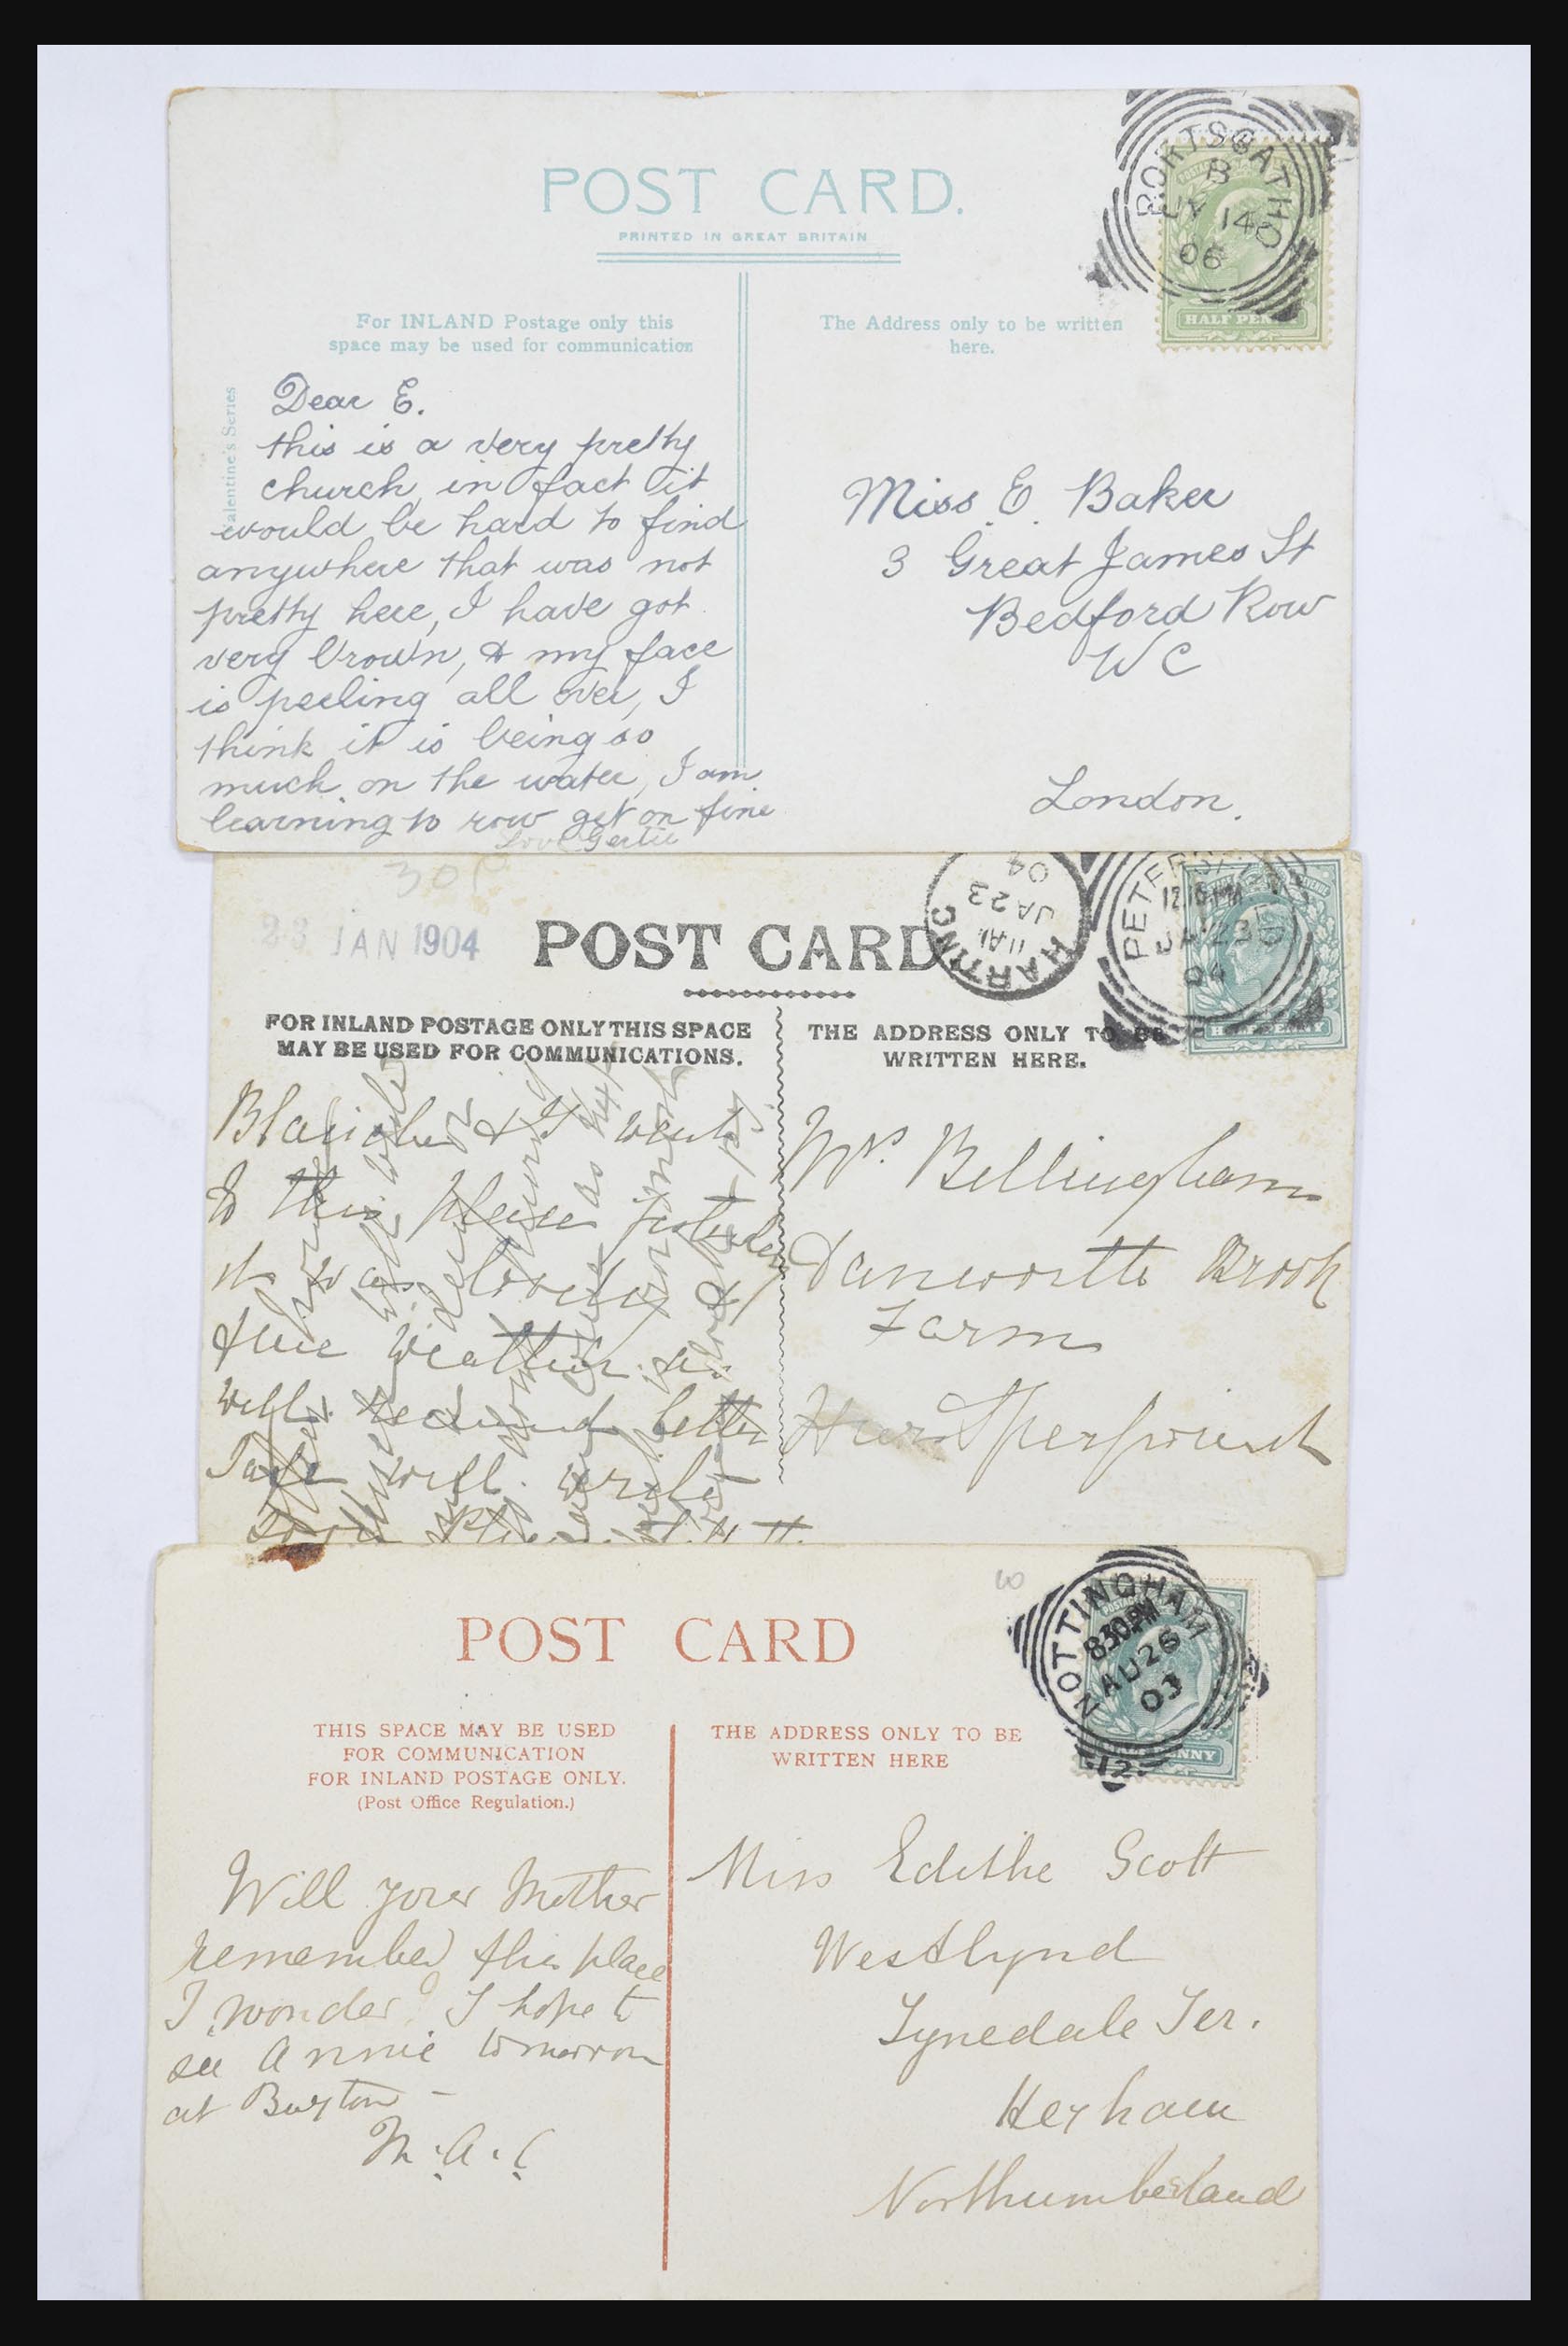 POST CARD.
PRINTED IN GREAT BRITAIN
PORTSCATHO
B
JY 14
06
HALF PENNY
For INLAND Postage only this
space may be used for communication
The Address only to be written
here.
Valentine's Series
Dear E.
this is a very pretty
church, in fact it
would be hard to find
anywhere that was not
pretty here, I have got
very brown, & my face
is peeling all over, I
think it is being so
much on the water, I am
learning to row get on fine
Love Gertie
Miss E. Baker
3 Great James St
Bedford Row
W C
London.
30p
23 JAN 1904
POST CARD
HARTING
11 AM
JA 23
04
PETERSFIELD
12.15 PM
JA 23
04
HALFPENNY
FOR INLAND POSTAGE ONLY THIS SPACE
MAY BE USED FOR COMMUNICATIONS.
THE ADDRESS ONLY TO BE
WRITTEN HERE.
Blanche & I went
to this place
it was lovely
fine weather as
well. Received letter
will write
Mrs. Bellingham
Danworth Brook
Farm
Hurstpierpoint
60
POST CARD
NOTTINGHAM
8.30 PM
AU 26
03
12
HALFPENNY
THIS SPACE MAY BE USED
FOR COMMUNICATION
FOR INLAND POSTAGE ONLY.
(Post Office Regulation.)
THE ADDRESS ONLY TO BE
WRITTEN HERE
Will your Mother
remember this place
I wonder? I hope to
see Annie tomorrow
at Buxton –
M.A.C
Miss Edithe Scott
Westlynd
Tynedale Ter.
Hexham
Northumberland